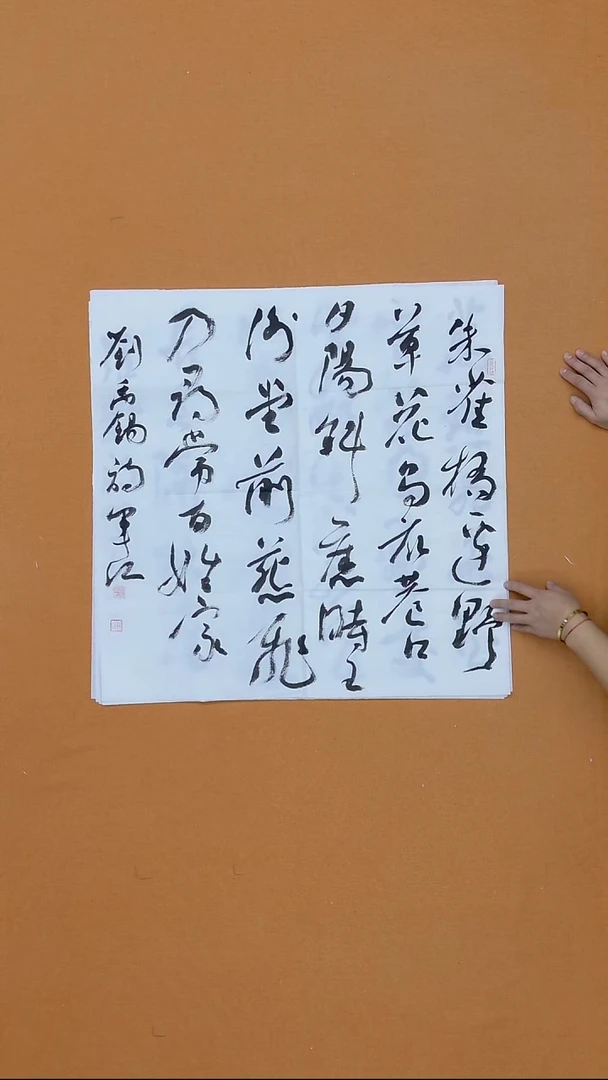 朱雀橋邊野
草花烏衣巷口
夕陽斜舊時王
謝堂前燕飛
乃尋常百姓家
劉禹錫詩軍江